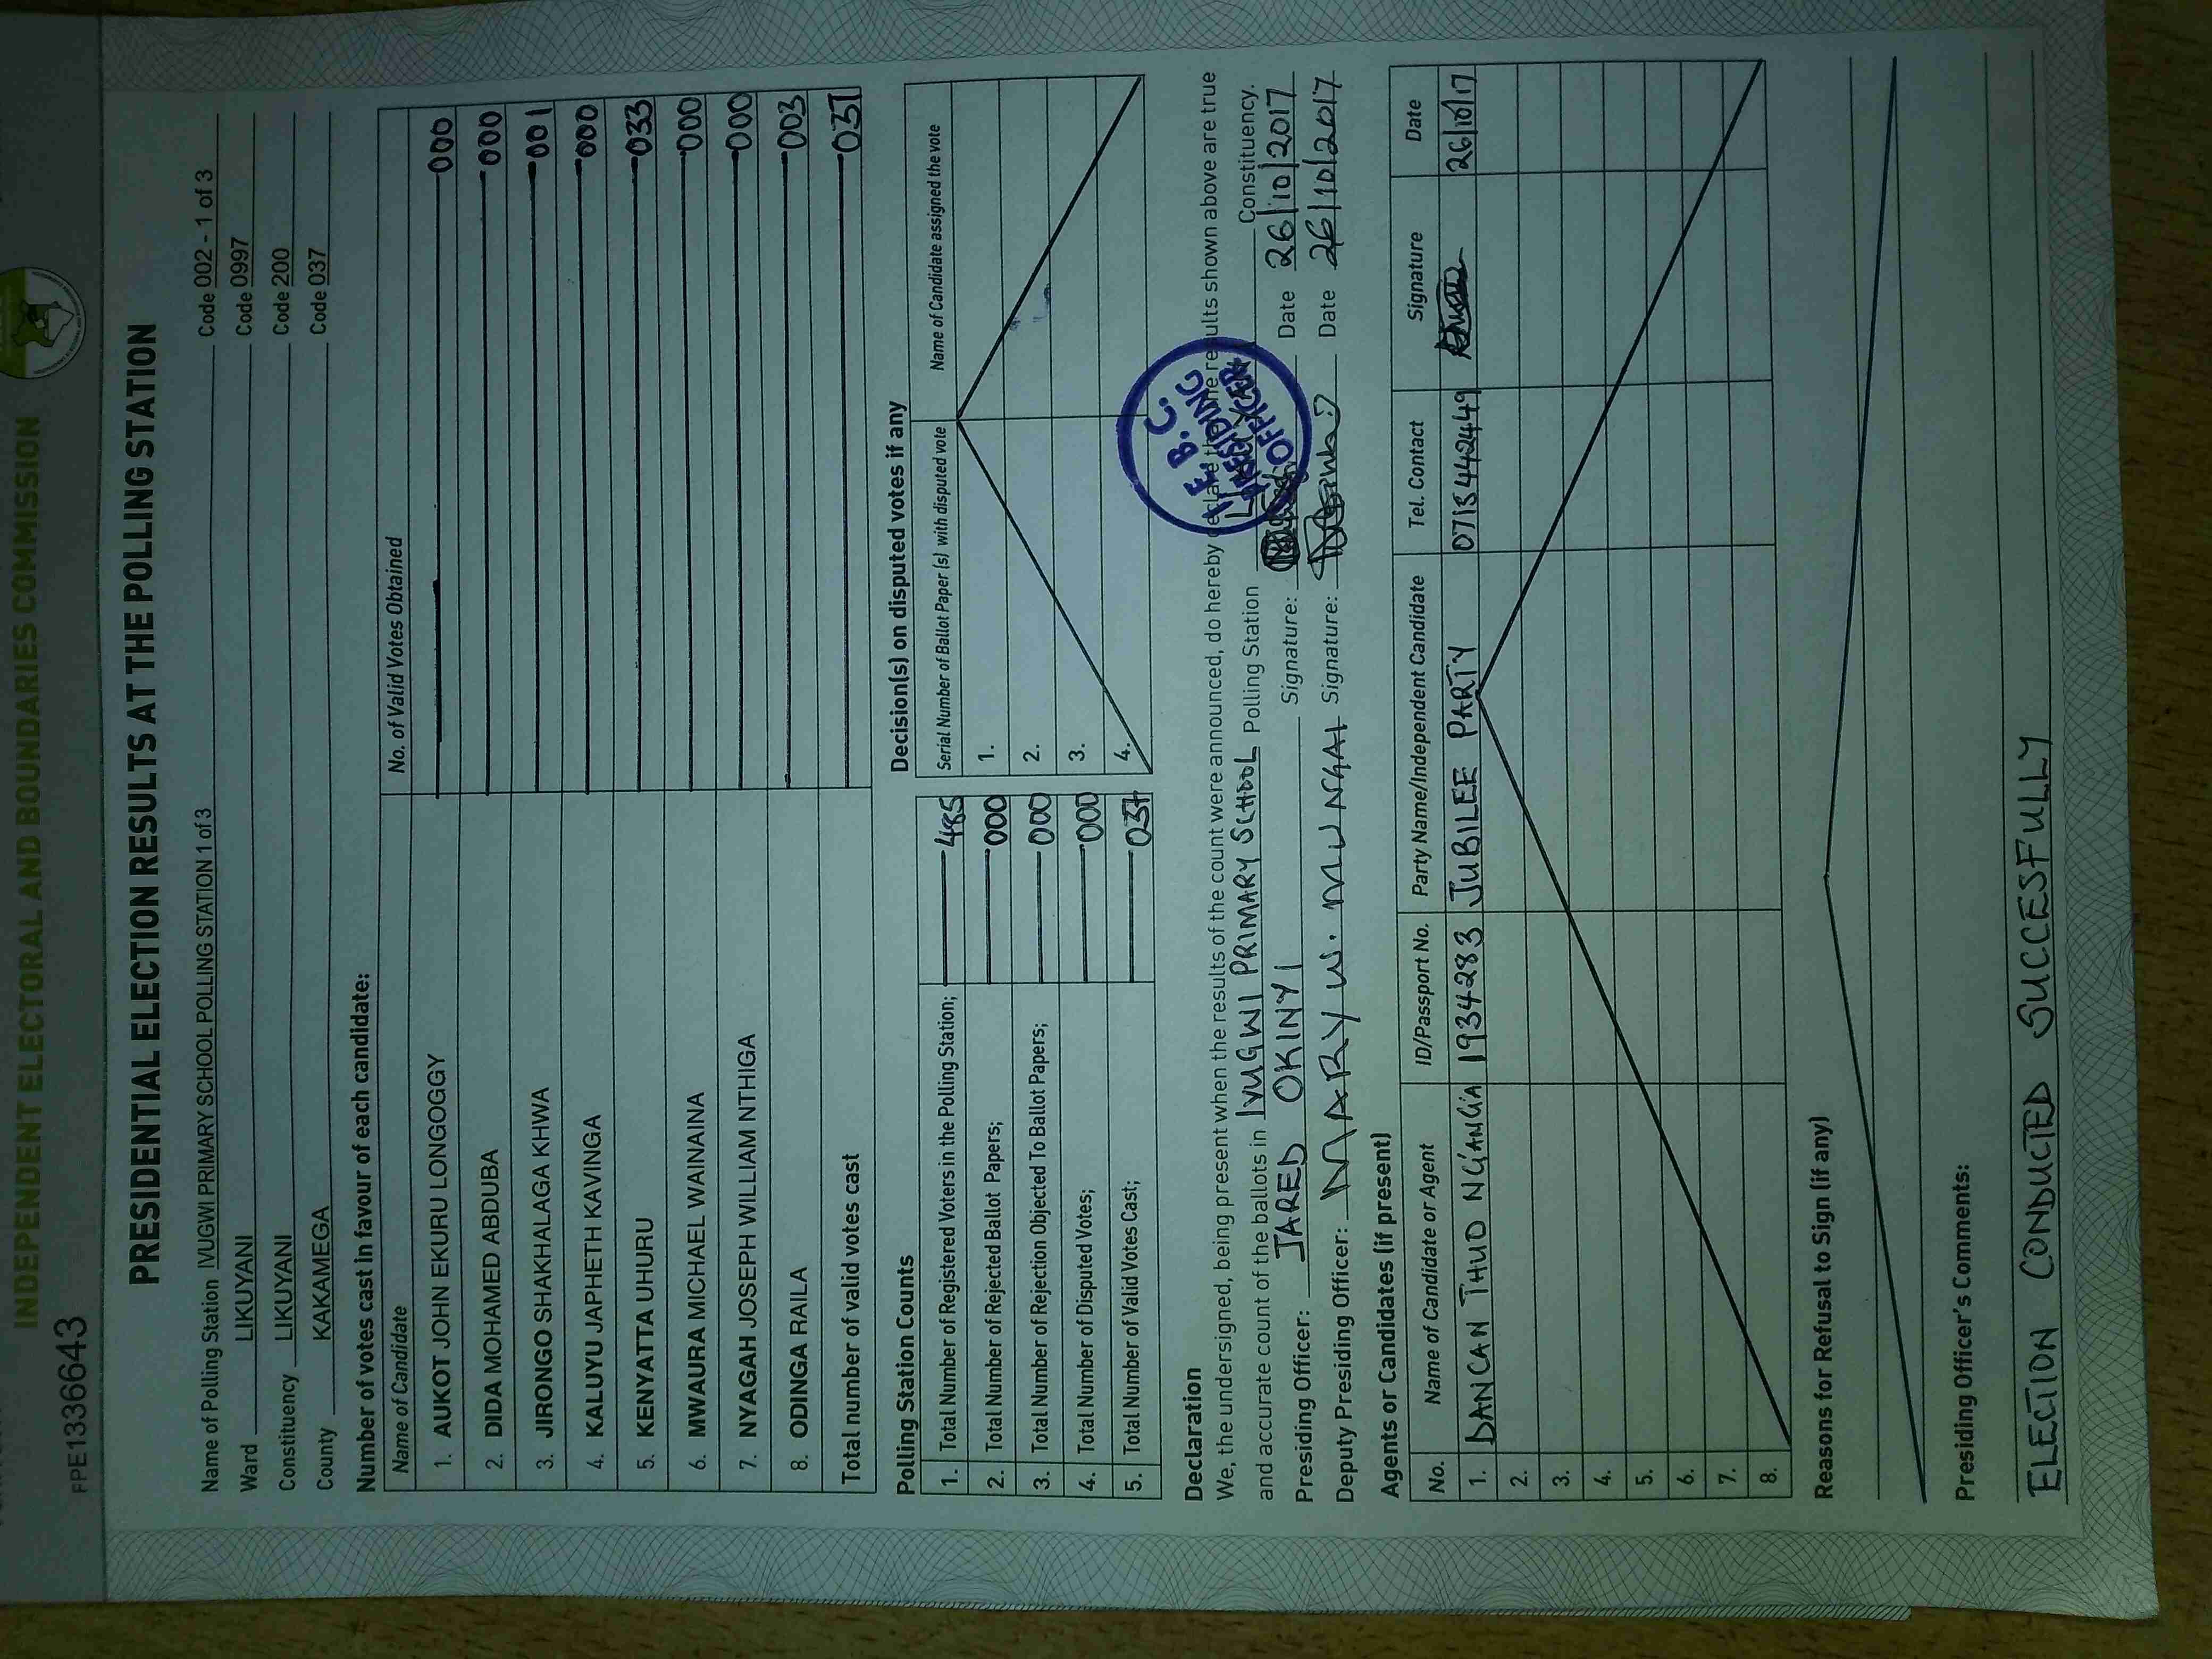 INDEPENDENT ELECTORAL AND BOUNDARIES COMMISSION
FPE1336643
PRESIDENTIAL ELECTION RESULTS AT THE POLLING STATION
Name of Polling Station IVUGWI PRIMARY SCHOOL POLLING STATION 1 of 3 Code 002 - 1 of 3
Ward LIKUYANI Code 0997
Constituency LIKUYANI Code 200
County KAKAMEGA Code 037
Number of votes cast in favour of each candidate:
Name of Candidate No. of Valid Votes Obtained
1. AUKOT JOHN EKURU LONGOGGY 000
2. DIDA MOHAMED ABDUBA 000
3. JIRONGO SHAKHALAGA KHWA 001
4. KALUYU JAPHETH KAVINGA 000
5. KENYATTA UHURU 033
6. MWAURA MICHAEL WAINAINA 000
7. NYAGAH JOSEPH WILLIAM NTHIGA 000
8. ODINGA RAILA 003
Total number of valid votes cast 037
Polling Station Counts
1. Total Number of Registered Voters in the Polling Station; 485
2. Total Number of Rejected Ballot Papers; 000
3. Total Number of Rejection Objected To Ballot Papers; 000
4. Total Number of Disputed Votes; 000
5. Total Number of Valid Votes Cast; 037
Decision(s) on disputed votes if any
Serial Number of Ballot Paper (s) with disputed vote Name of Candidate assigned the vote
1.
2.
3.
4.
Declaration
We, the undersigned, being present when the results of the count were announced, do hereby declare that the results shown above are true
and accurate count of the ballots in IVUGWI PRIMARY SCHOOL Polling Station Constituency.
Presiding Officer: JARED OKINYI Signature: Date 26/10/2017
Deputy Presiding Officer: MARY W. MUNGAI Signature: Date 26/10/2017
I.E.B.C.
PRESIDING
OFFICER
Agents or Candidates (if present)
No. Name of Candidate or Agent ID/Passport No. Party Name/Independent Candidate Tel. Contact Signature Date
1. DANCAN THUO NG'ANG'A 1934283 JUBILEE PARTY 0713442449 26/10/17
2.
3.
4.
5.
6.
7.
8.
Reasons for Refusal to Sign (if any)
Presiding Officer's Comments:
ELECTION CONDUCTED SUCCESFULLY